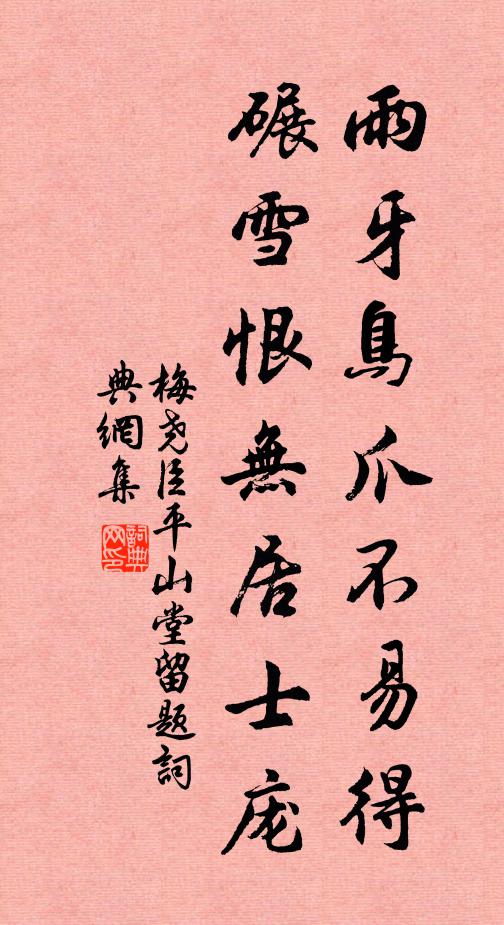 雨牙鳥爪不易得
碾雪恨無居士庞
梅尧臣平山堂留題詞
典網集
詞典
网印